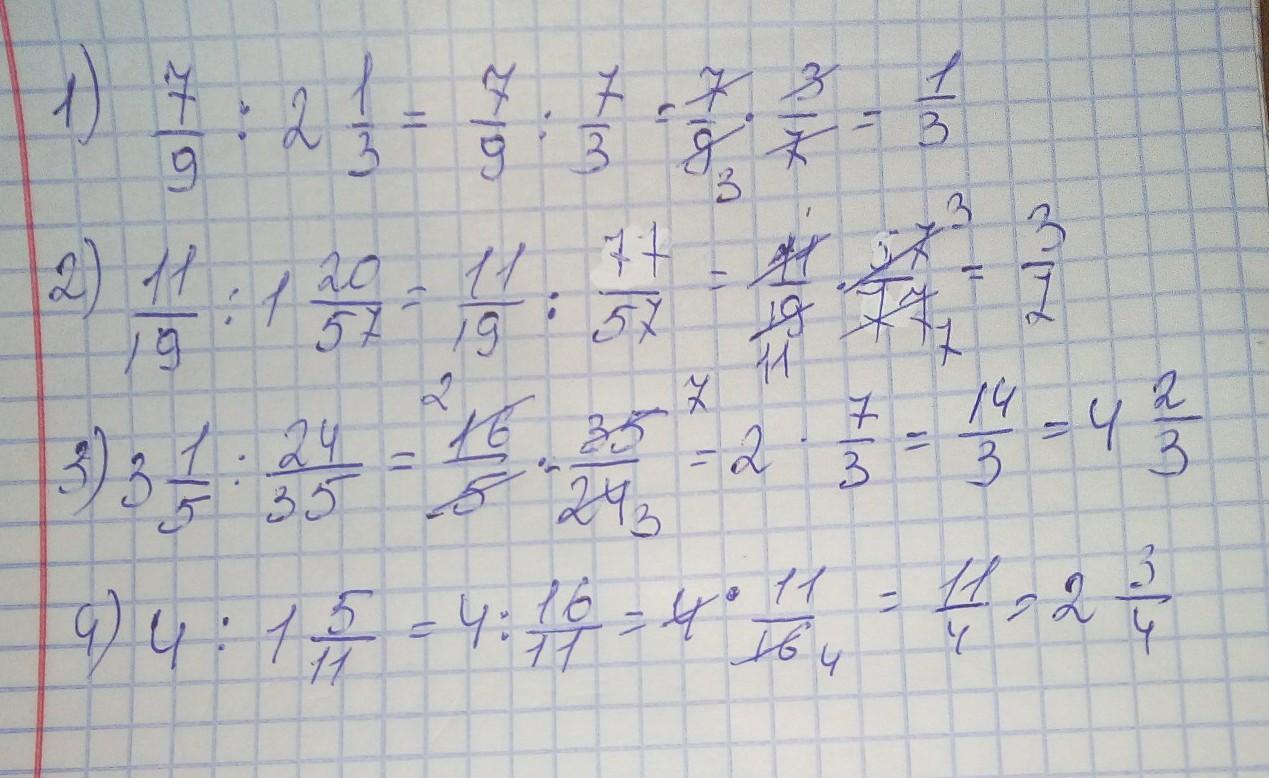 1) 7/9 : 2 1/3 = 7/9 : 7/3 = 7/9 3 · 3/7 = 1/3
2) 11/19 : 1 20/57 = 11/19 : 77/57 = 11/19 11 · 57 3/77 7 = 3/7
3) 3 1/5 : 24/35 = 2 16/5 · 35 7/24 3 = 2 · 7/3 = 14/3 = 4 2/3
4) 4 : 1 5/11 = 4 : 16/11 = 4 · 11/16 4 = 11/4 = 2 3/4